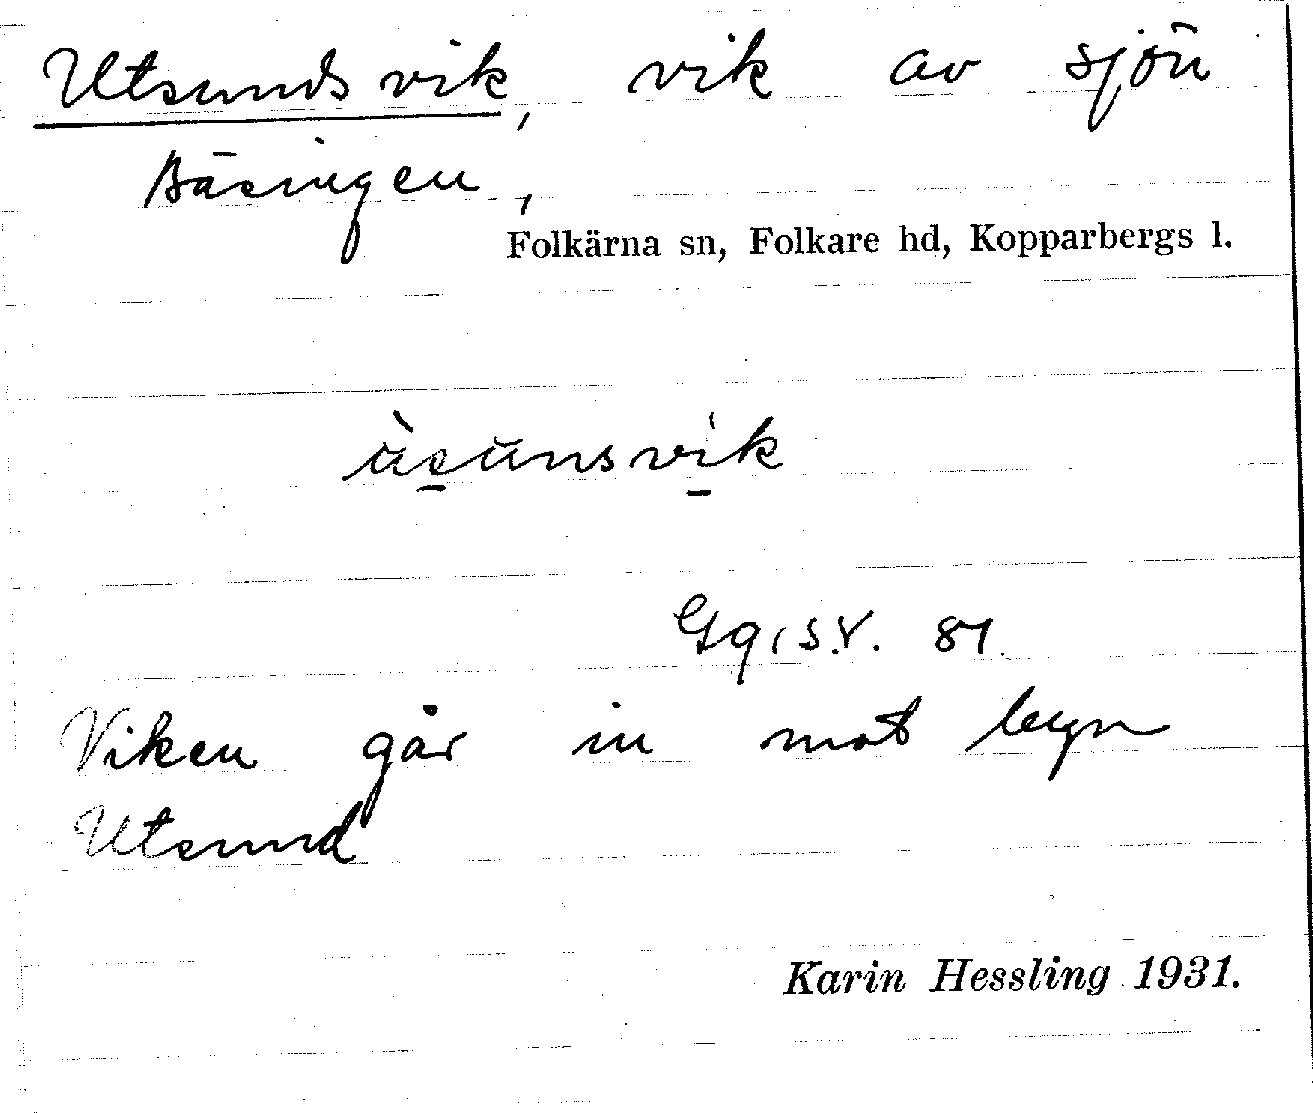 Utsundsvik, vik av sjön
Bäsingen,
Folkärna sn, Folkare hd, Kopparbergs l.
ùsunsvik
81
Viken går in mot byn
Utsund
Karin Hessling 1931.